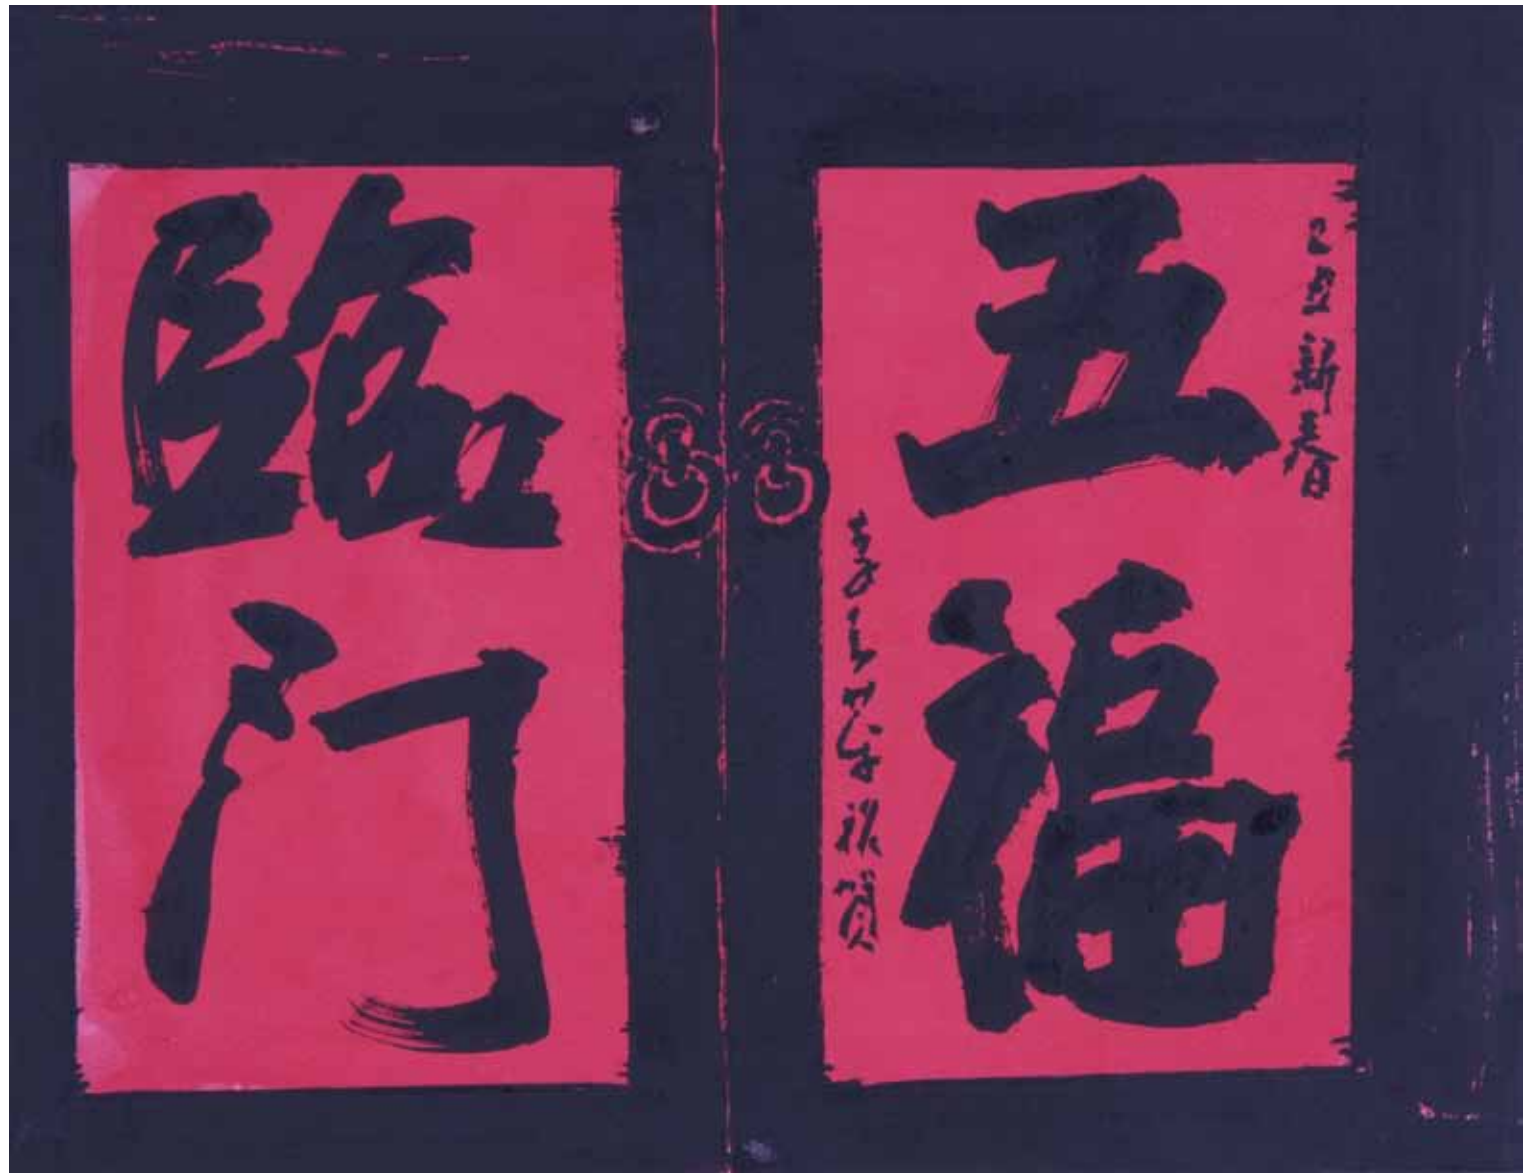 己丑新春
五福
祝賀
臨门